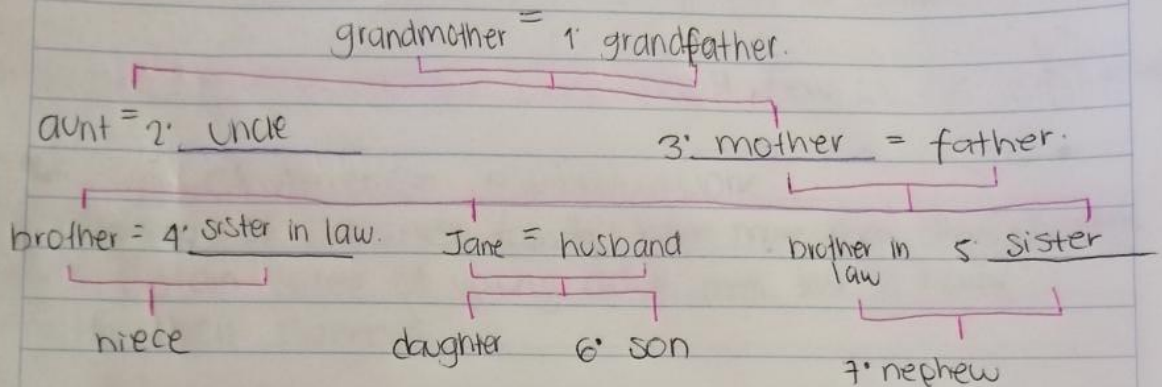 grandmother = 1. grandfather.
aunt = 2. uncle
3. mother = father.
brother = 4. sister in law. Jane = husband brother in law 5. sister
niece daughter 6. son 7. nephew